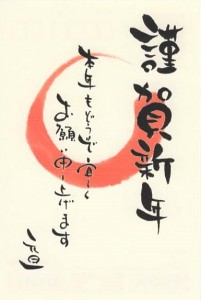 謹賀新年
本年もどうぞ宜しく
お願い申し上げます
元旦